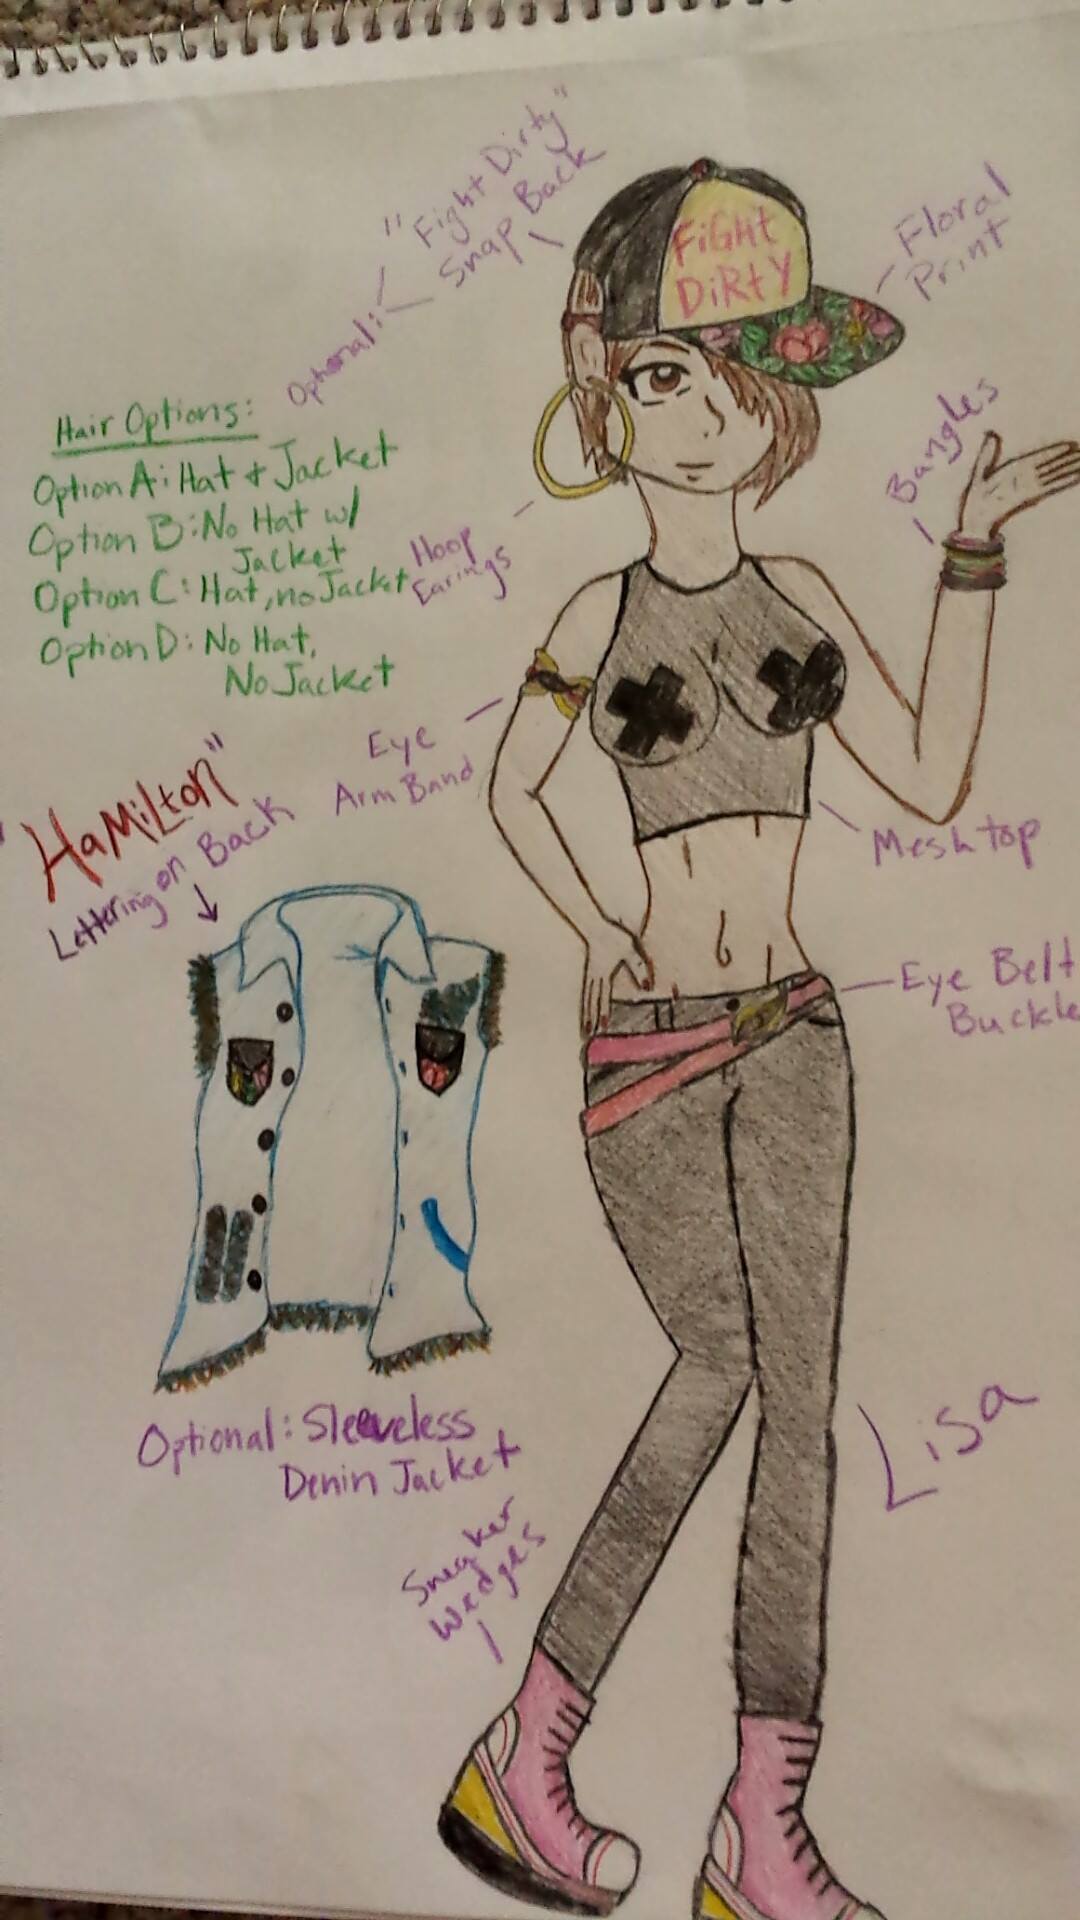 "Fight Dirty"
Snap Back
Optional:
FiGHt
DiRtY
Floral
Print
Hair Options:
Option A: Hat + Jacket
Option B: No Hat w/
Jacket
Option C: Hat, no Jacket
Option D: No Hat,
No Jacket
Bangles
Hoop
Earings
Eye
Arm Band
"HaMiLton"
Lettering on Back
Mesh top
Eye Belt
Buckle
Optional: Sleeveless
Denin Jacket
Lisa
Sneaker
Wedges